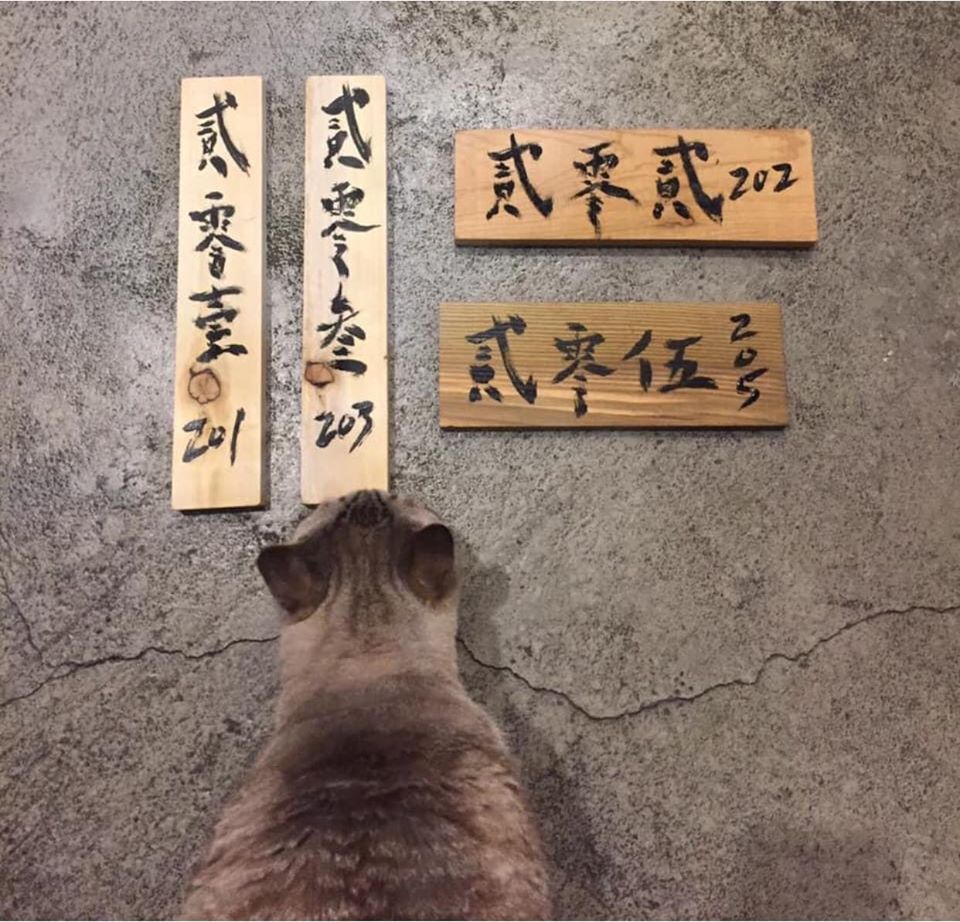 貳零壹
201
貳零叁
203
貳零貳 202
貳零伍 205